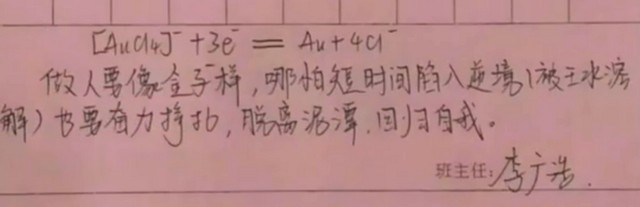 [AuCl4]⁻ + 3e⁻ == Au + 4Cl⁻
做人要像金子一样，哪怕短时间陷入逆境（被王水溶
解）也要奋力挣扎，脱离泥潭，回归自我。
班主任：李广浩.